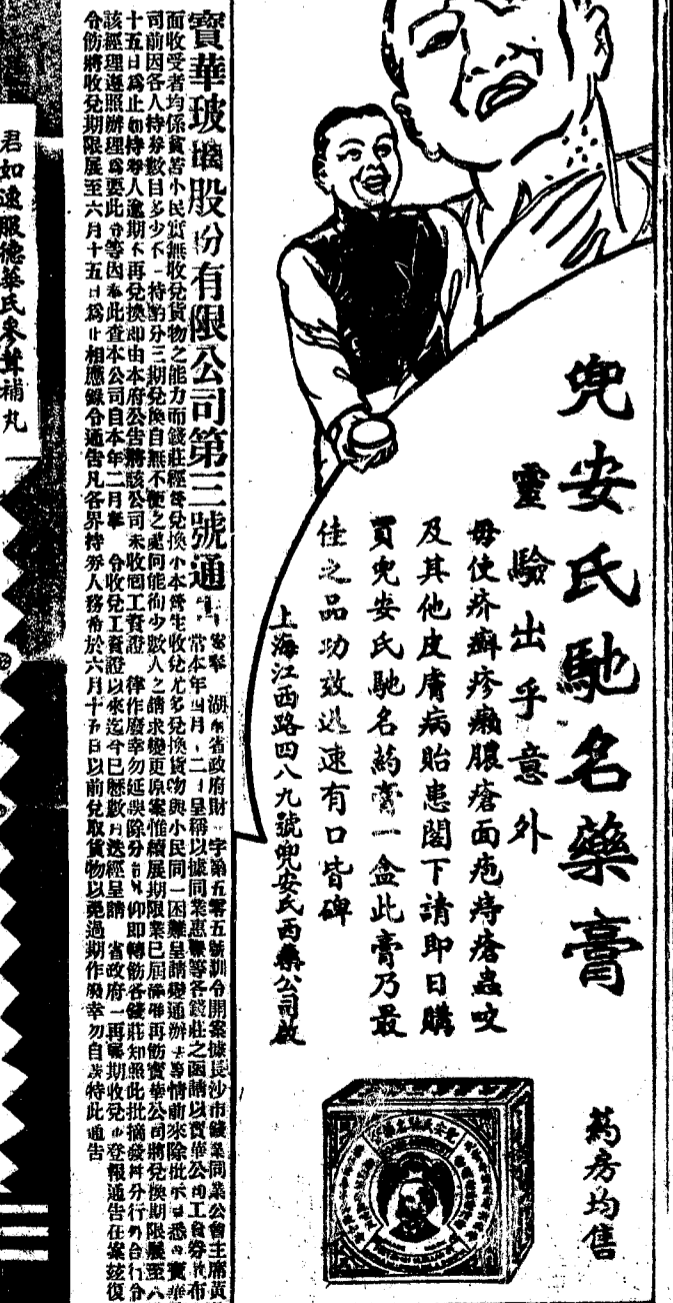 兜安氏馳名藥膏
靈驗出乎意外
毋使疥癬疹癩膿瘡面疱痔瘡蟲咬
及其他皮膚病貽患閣下請即日購
買兜安氏馳名葯膏一盒此膏乃最
佳之品功效迅速有口皆碑
上海江西路四八九號兜安氏西藥公司啟
葯房均售
寶華玻璃股份有限公司第三號通
湖南省政府財字第五零五號訓令開案據長沙市錢業同業公會主席黃
面收受者均係貧苦小民實無收兌貨物之能力而錢莊經營兌換小本營生收兌尤多兌換貨物與小民同一困難呈請變通辦
司前因各人持券數目多少不一持酌分三期兌換自無不便之處何能徇少數人之請求變更原案惟續展期限業已屆滿再飭寶華公司將兌換期限展至六
十五日為止如持券人逾期不再兌換即由本府公告將該公司未收回工資證一律作廢幸勿延誤除分 外仰即轉飭各錢莊知照此批摘發
該經理遵照辦理為要此令等因奉此查本公司自本年二月奉 令收兌工資證以來迄今已歷數月迭經呈請 省政府一再展期收兌 登報通告在案茲復
令飭將收兌期限展至六月十五日為止相應錄令通告凡各界持券人務希於六月十五日以前兌取貨物以免過期作廢幸勿自誤特此通告
君如速服德華氏參茸補丸